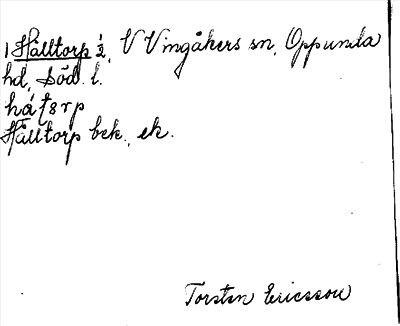 1 Hålltorp ½, V Vingåkers sn, Oppunda
hd, Söd. l.
håltsrp
Hålltorp bek., ek.
Torsten Ericsson